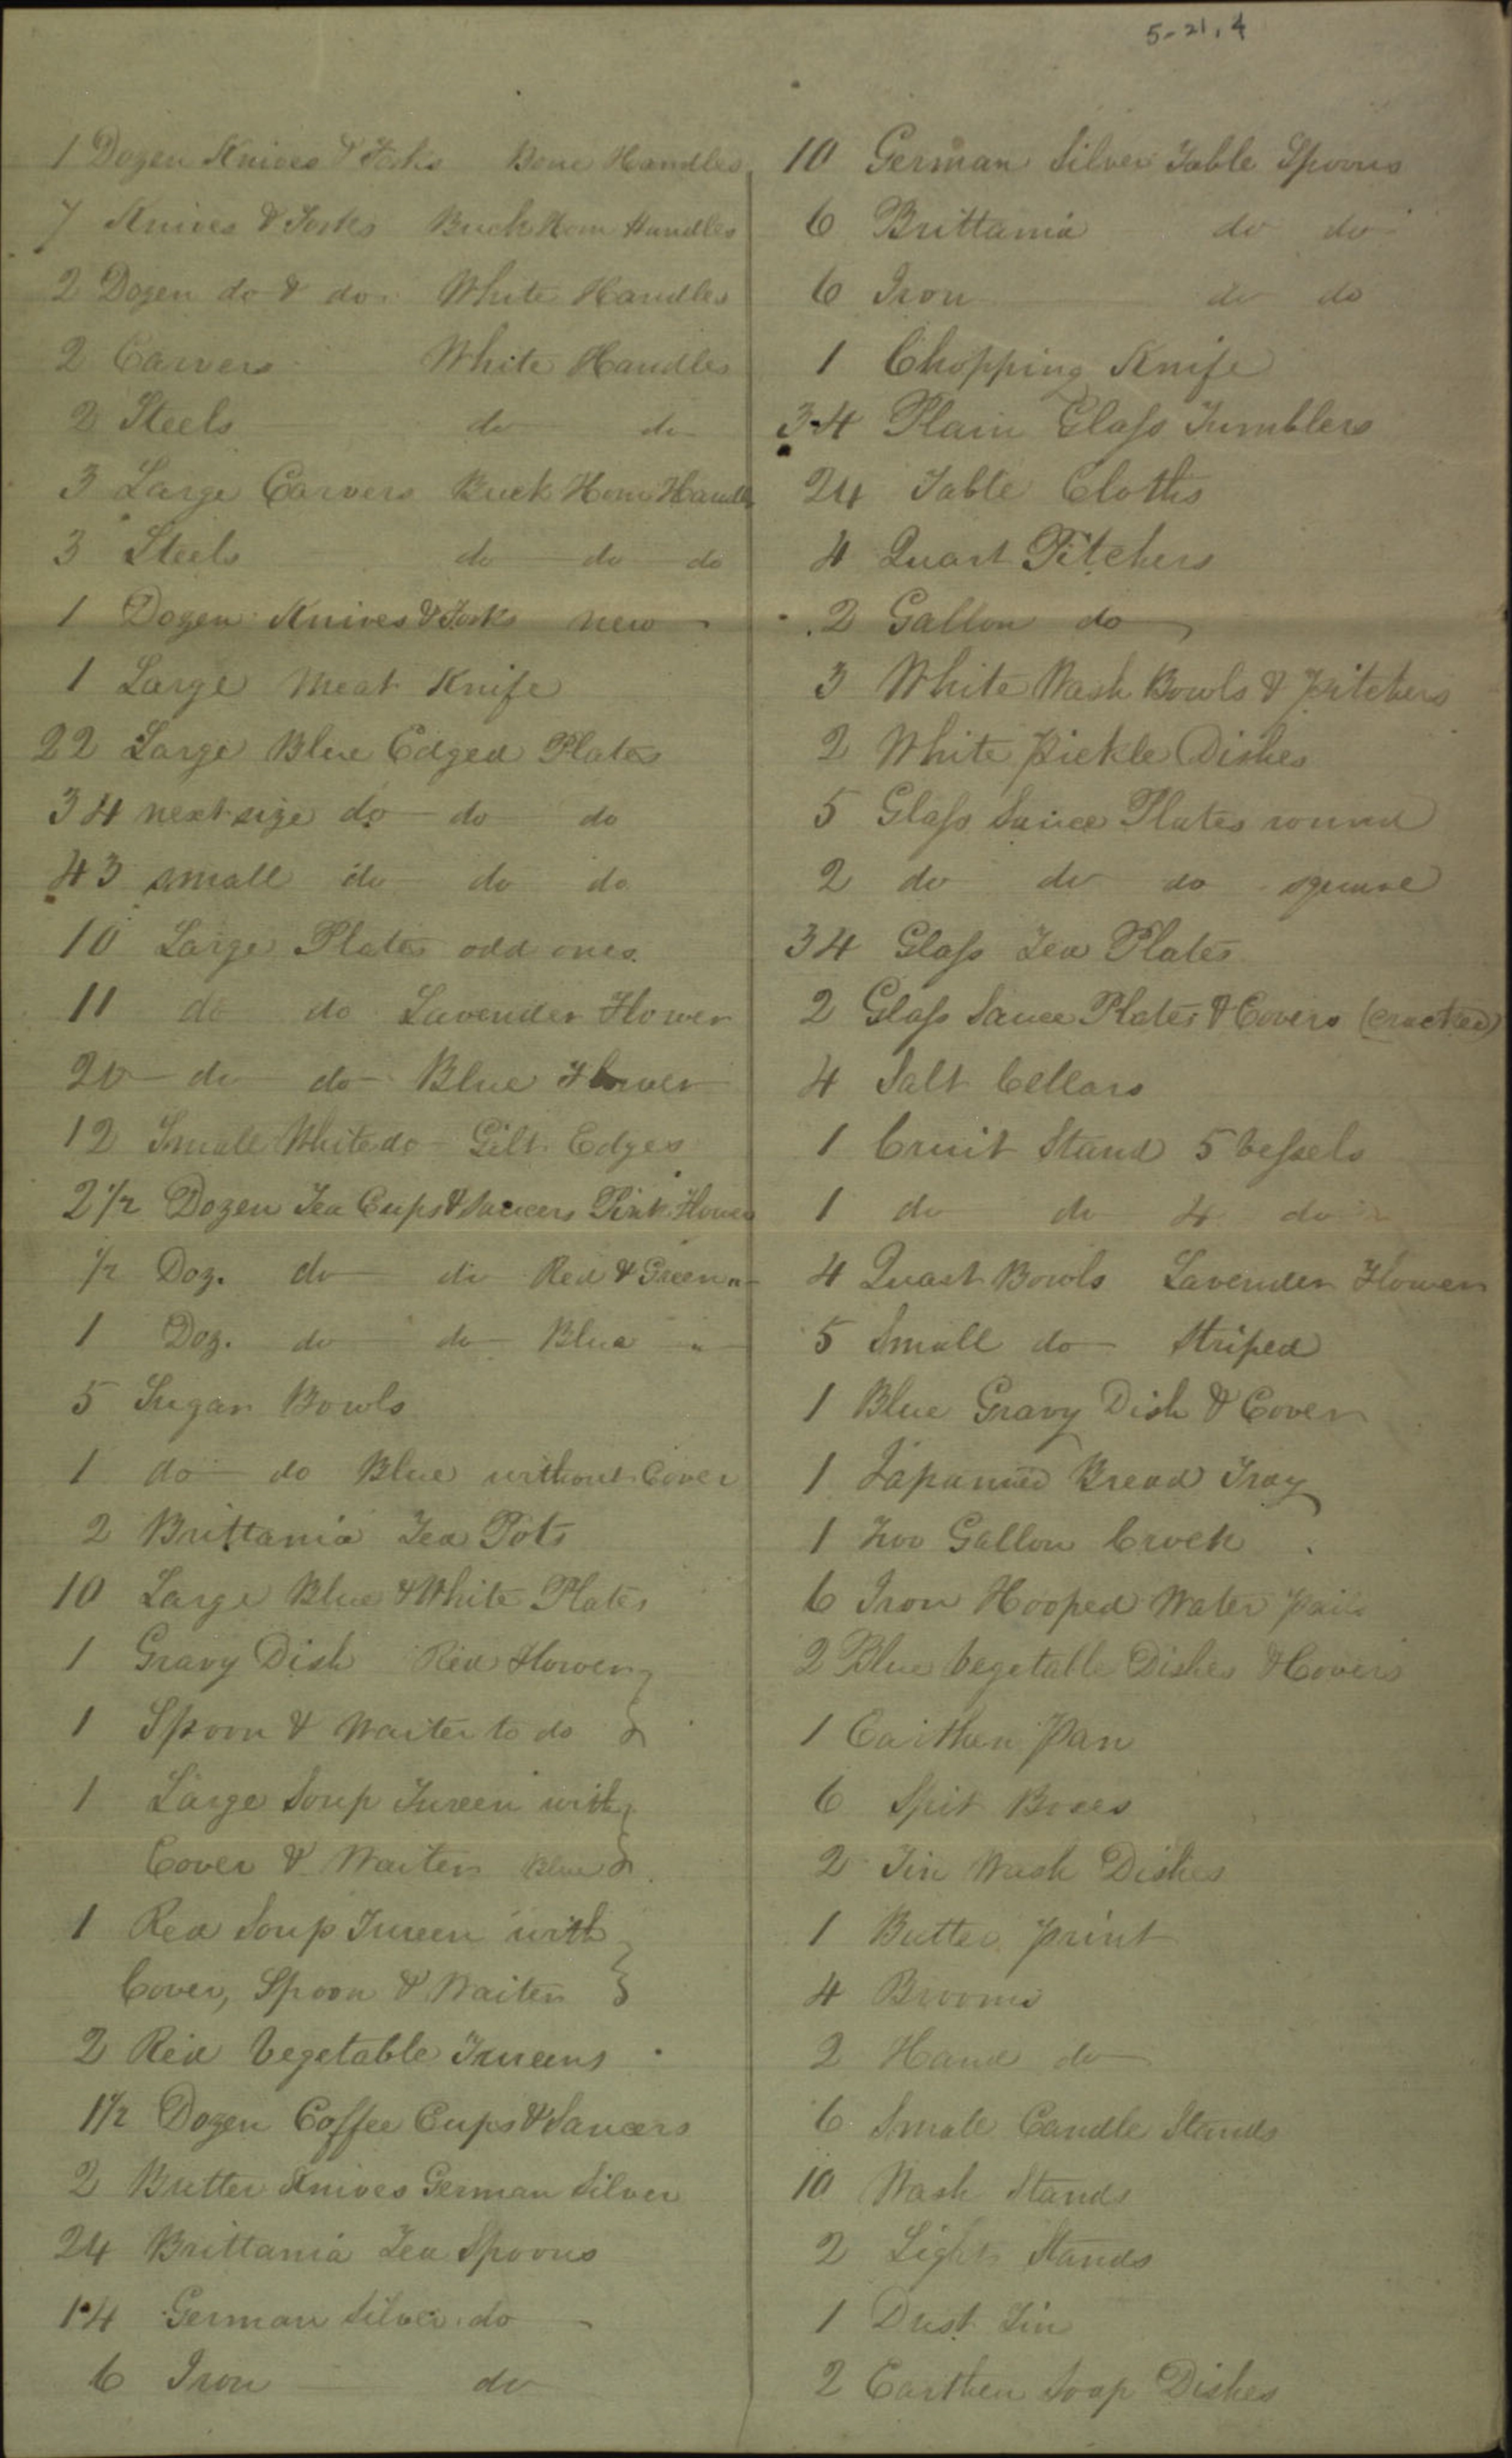 5-21.4
1 Dozen Knives & Forks Bone Handles
7 Knives & Forks Buck Horn Handles
2 Dozen do & do White Handles
2 Carvers White Handles
2 Steels do do
3 Large Carvers Buck Horn Handle
3 Steels do do do
1 Dozen Knives & Forks new
1 Large Meat Knife
22 Large Blue Edged Plates
34 next size do do do
43 small do do do
10 Large Plates odd ones.
11 do do Lavender Flower
20 do do Blue Flower
12 Small White do Gilt Edges
2 1/2 Dozen Tea Cups & Saucers Pink Flower
1/2 Doz. do do Red & Green "
1 Doz. do do Blue "
5 Sugar Bowls
1 do do Blue without Cover
2 Brittania Tea Pots
10 Large Blue & White Plates
1 Gravy Dish Red Flower
1 Spoon & Waiter to do
1 Large Soup Tureen with
Cover & Waiter Blue
1 Red Soup Tureen with
Cover, Spoon & Waiter
2 Red Vegetable Tureens
1 1/2 Dozen Coffee Cups & Saucers
2 Butter Knives German Silver
24 Brittania Tea Spoons
14 German Silver do
6 Iron do
10 German Silver Table Spoons
6 Brittania do do
6 Iron do do
1 Chopping Knife
34 Plain Glass Tumblers
24 Table Cloths
4 Quart Pitchers
2 Gallon do
3 White Wash Bowls & Pitchers
2 White Pickle Dishes
5 Glass Sauce Plates round
2 do do do square
34 Glass Tea Plates
2 Glass Sauce Plates & Covers (cracked)
4 Salt Cellars
1 Cruit Stand 5 Vessels
1 do do 4 do
4 Quart Bowls Lavender Flower
5 Small do Striped
1 Blue Gravy Dish & Cover
1 Japanned Bread Tray
1 Two Gallon Crock
6 Iron Hooped Water Pails
2 Blue Vegetable Dishes & Covers
1 Earthen Pan
6 Spit Boxes
2 Tin Wash Dishes
1 Butter Print
4 Brooms
2 Hand do
6 Small Candle Stands
10 Wash Stands
2 Light Stands
1 Dust Tin
2 Earthen Soap Dishes